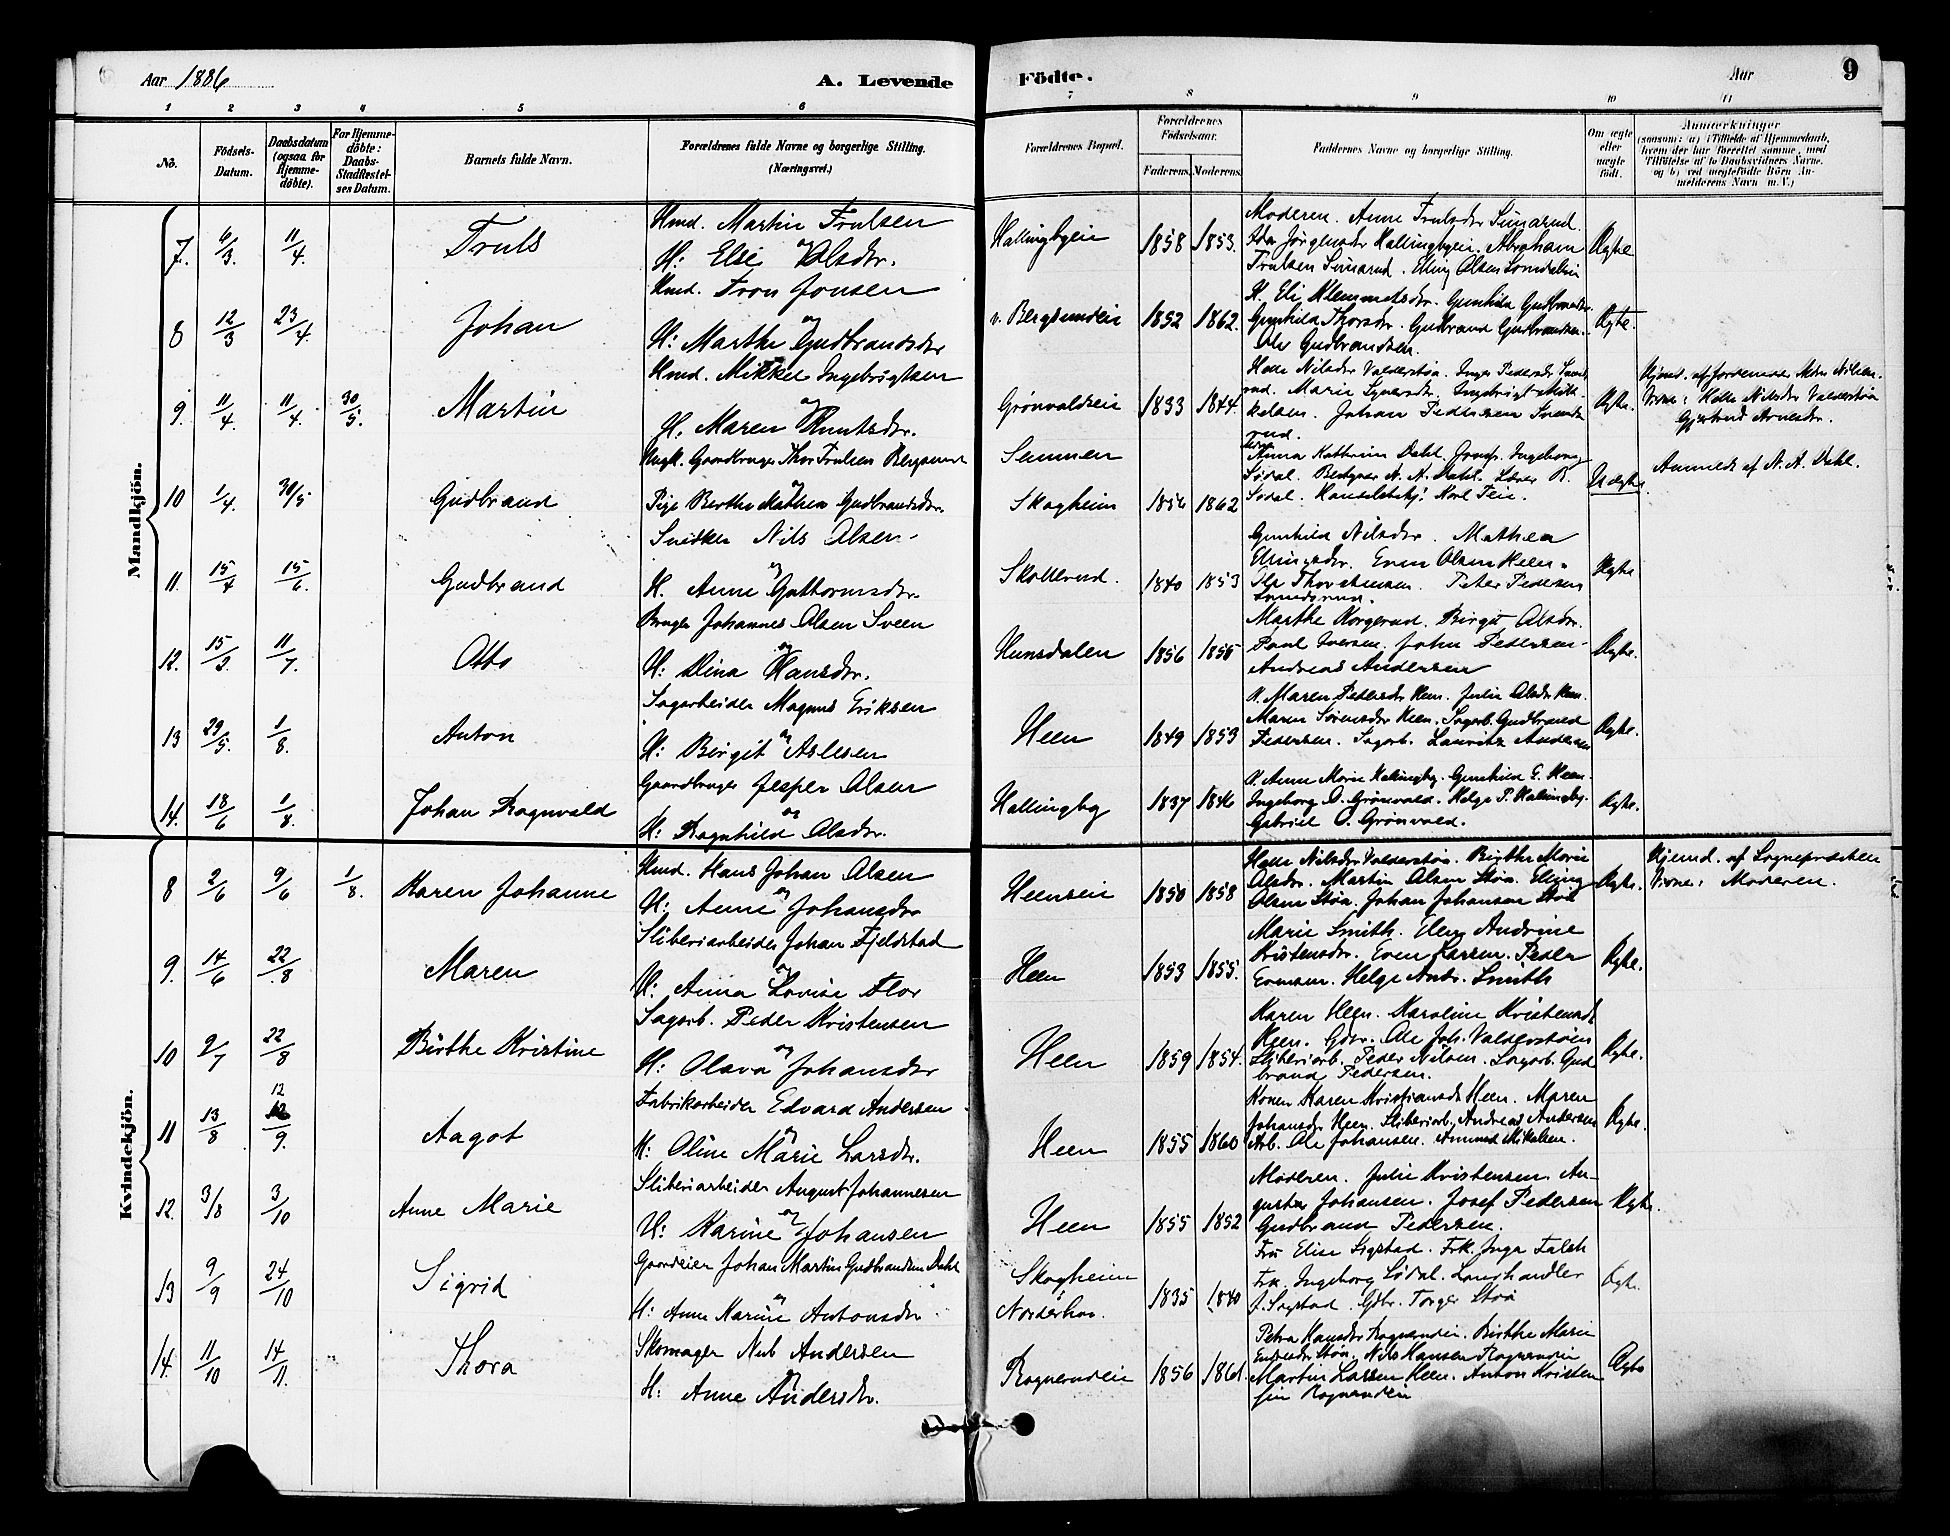 Aar 1886 A. Levende Födte. Aar 9
1 2 3 4 5 6 7 8 9 10 11
No. Födsels-Datum. Daabsdatum (ogsaa for Hjemme-döbte). For Hjemme-döbte: Daabs-Stadfæstelses Datum. Barnets fulde Navn. Forældrenes fulde Navne og borgerlige Stilling. (Næringsvei.) Forældrenes Bopæl. Forældrenes Födselsaar. Faderens. Moderens. Faddernes Navne og borgerlige Stilling. Om ægte eller uægte födt. Anmærkninger (saasom: a) i Tilfælde af Hjemmedaab, hvem der har forrettet samme, med Tilföielse af to Daabsvidners Navne, og b) ved uægtefödte Börn Anmelderens Navn m. V.)
Mandkjön.
7. 6/3. 11/4. Truls
Hmd. Martin Trulsen
og
H: Elsi Olsdr.
Hallingbyeie 1858 1853.
Moderen. Anne Trulsdr
Jörgensdr Hallingbyeie. Abraham
Trulsen. Elling Olsen
Ægte
8 12/3 23/4. Johan
Hmd. Tron Jonsen
og
H: Marthe Gudbrandsdr
v. Bergsundeie 1852 1862.
H. Eli Klemmetsdr. Gunhild Gudbrandsdr
Gunhild Thorsdr. Gudbrand Gudbrandsen.
Ole Gudbrandsen.
Ægte.
9. 11/4. 11/4. 30/5. Martin
Hmd. Mikkel Ingebrigtsen
og
H. Maren Knutsdr.
Grönvoldseie 1833 1844.
Helle Nilsdr Valderstöa. Inger Pedersdr
Marie. Ingebrigt Mik-
kelsen. Johan Pedersen
rud.
Ægte.
Hjemd. af Jordemor Nilsen.
Vidne: Helle Nilsdr Valderstöa
Gjertrud Arnesdr.
10 1/4. 30/5 Gudbrand
Ungk. Gaardbruger Thor Trulsen Bergsund
og
Pige Berthe Mathea Gudbrandsdr.
Semmen
Skagheim 1856 1862
Anna Kathrine Dahl. Ingeborg
Södal. Bestyrer N. A. Dahl. Lærer B.
Södal. Karl Teie.
Uægte.
Anmeldt af N. A. Dahl.
11. 15/4 15/6. Gudbrand
Snedker Nils Olsen
og
H. Anne Guthormsdr.
Skollerud. 1840 1853
Gunhild Nilsdr. Mathea
Ellingsdr. Even Olsen Heen.
Peter Pedersen
Ægte
12. 15/2. 11/7. Otto
Bruger Johannes Olsen Sveen
og
H: Dina Hansdr.
Hunsdalen 1856 1855
Marthe Korgerud. Birgit Olsdr.
Paul Iversen. John Pedersen
Andreas Andersen
Ægte.
13 29/5. 1/8. Anton
Sagarbeider Magnus Eriksen
og
H: Birgit Aslesen
Heen 1849 1853
H. Maren Pedersdr Heen. Julie Olsdr Heen.
Maren Sörensdr Heen. Sagarb. Gudbrand
Pedersen. Sagarb. Lauritz Andersen
Ægte.
14. 18/6 1/8. Johan Ragnvald
Gaardbruger Jesper Olsen
og
H: Ragnhild Olsdr.
Hallingby 1837 1846
H. Anne Marie Hallingby. Gunhild G. Heen.
Ingeborg O. Grönvold. Helge P. Hallingby.
Gabriel O. Grönvold.
Ægte.
Kvindekjön.
8 2/6 9/6 1/8. Karen Johanne
Hmd. Hans Johan Olsen
og
H: Anne Johansdr
Heenseie 1850 1858
Helle Nilsdr Valderstöa. Birthe Marie
Olsdr. Martin Olsen Stöa. Elling
Olsen Stöa. Johan Johansen Stöa
Ægte.
Hjemd. af Sognepræsten
Vidne: Moderen.
9. 14/6 22/8 Maren
Sliberiarbeider Johan Fjeldstad
og
H: Anna Lovise Flor
Heen 1853 1855.
Marie Smith. Elen Andrine
Kristensdr. Even Larsen. Peder
Evensen. Helge Andr. Smith
Ægte.
10 2/7 22/8 Birthe Kristine
Sagarb. Peder Kristensen
og
H: Olava Johansdr
Heen 1859 1854.
Karen Heen. Karoline Kristensdr
Heen. Gdbr. Ole Joh. Valderstöen
Sliberiarb. Peder Nilsen. Sagarb. Gud-
brand Pedersen.
Ægte.
11 13/8 12/9. Aagot
Fabrikarbeider Edvard Andersen
og
H: Oline Marie Larsdr.
Heen 1855 1860
Konen Karen Kristiansdr Heen. Maren
Johansdr Heen. Sliberiarb. Andreas Andersen
Arb. Ole Johansen. Amund Mikelsen.
Ægte.
12. 3/8 3/10 Anne Marie
Sliberiarbeider August Johannesen
og
H: Karine Johansen
Heen 1855 1852
Moderen. Julie Kristensen. Au-
gusta Johansen. Josef Pedersen
Gudbrand Pedersen.
Ægte.
13 9/9 24/10 Sigrid
Gaardeier Johan Martin Gudbrandsen Dahl
og
H: Anne Marine Antonsdr
Skagheim
Norderhov. 1835 1840
Fru Elise Sigstad. Frk. Inga Falch
Frk. Ingeborg Södal. Landhandler
J. Sagstad. Gdbr. Torger Stöa
Ægte.
14. 11/10 14/11. Thora
Skomager Nub Andersen
og
H: Anne Andersdr.
Ragnerudeie 1856 1861.
Petra Hansdr Rognerudeie. Birthe Marie
Stöa. Nils Hansen Rognerudeie
Martin Larsen Heen. Anton Kristen-
sen Rognerudeie
Ægte